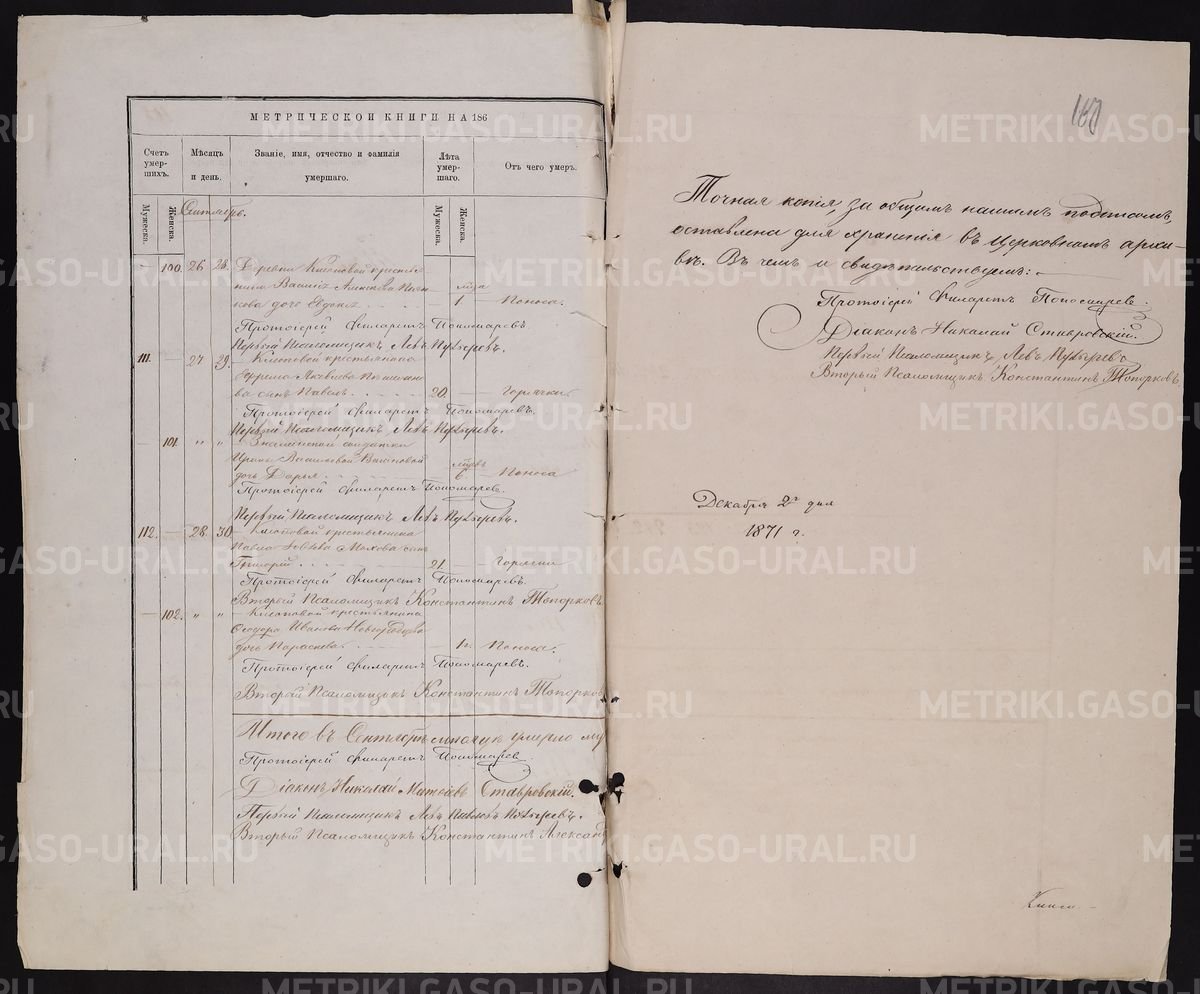 МЕТРИЧЕСКОЙ КНИГИ НА 186
Счетъ умер-шихъ.
Мѣсяцъ и день.
Званіе, имя, отчество и фамилія умершаго.
Лѣта умер-шаго.
Отъ чего умеръ.
Мужеска.
Женска.
Мужеска.
Женска.
Сентябрь.
— 100. 26 28. Деревни крестья-
нина лѣта
дочь 1 Поноса.
Протоіерей Филаретъ Пономаревъ.
Первый Псаломщикъ Левъ Пузыревъ.
111. — 27 29. крестьянина
Ефрема Яковлева
сынъ Павелъ 20. — Горячки
Протоіерей Филаретъ Пономаревъ.
Первый Псаломщикъ Левъ Пузыревъ.
— 101. " " солдатки
Ирины
дочь Дарья 6 — Поноса
Протоіерей Филаретъ Пономаревъ.
Первый Псаломщикъ Левъ Пузыревъ.
112. — 28. 30 крестьянина
Павла сынъ
Григорій 21. Горячки
Протоіерей Филаретъ Пономаревъ.
Вторый Псаломщикъ Константинъ Топорковъ.
— 102. " " крестьянина
Ѳеодора Иванова
дочь Параскева Поноса.
Протоіерей Филаретъ Пономаревъ.
Вторый Псаломщикъ Константинъ Топорков
Итого въ Сентябрѣ умерло му
Протоіерей Филаретъ Пономаревъ
Діаконъ Николай Матѳіевъ Ставровскій.
Первый Псаломщикъ Левъ Павловъ Пузыревъ.
Вторый Псаломщикъ Константинъ Александ
180
Точная копія, за общимъ нашимъ подписомъ,
оставлена для храненія въ Церковномъ архи-
вѣ. Въ чемъ и свидѣтельствуемъ: —
Протоіерей Филаретъ Пономаревъ.
Діаконъ Николай Ставровскій.
Первый Псаломщикъ Левъ Пузыревъ
Вторый Псаломщикъ Константинъ Топорковъ.
Декабря 2го дня
1871 г.
METRIKI.GASO-URAL.RU